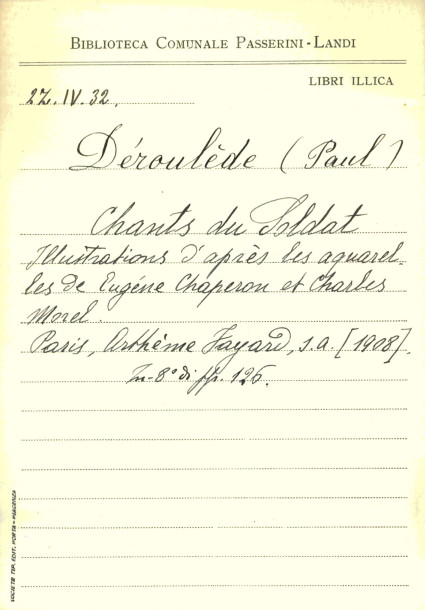 BIBLIOTECA COMUNALE PASSERINI-LANDI
LIBRI ILLICA
2Z.IV.32.
Déroulède (Paul)
Chants du Soldat
Illustrations d'après les aquarel-
les de Eugéne Chaperon et Charles
Morel.
Paris, Arthème Fayard, s.a. [1908].
In-8° di pp. 126.
SOCIETÀ TIP. EDIT. PORTA - PIACENZA